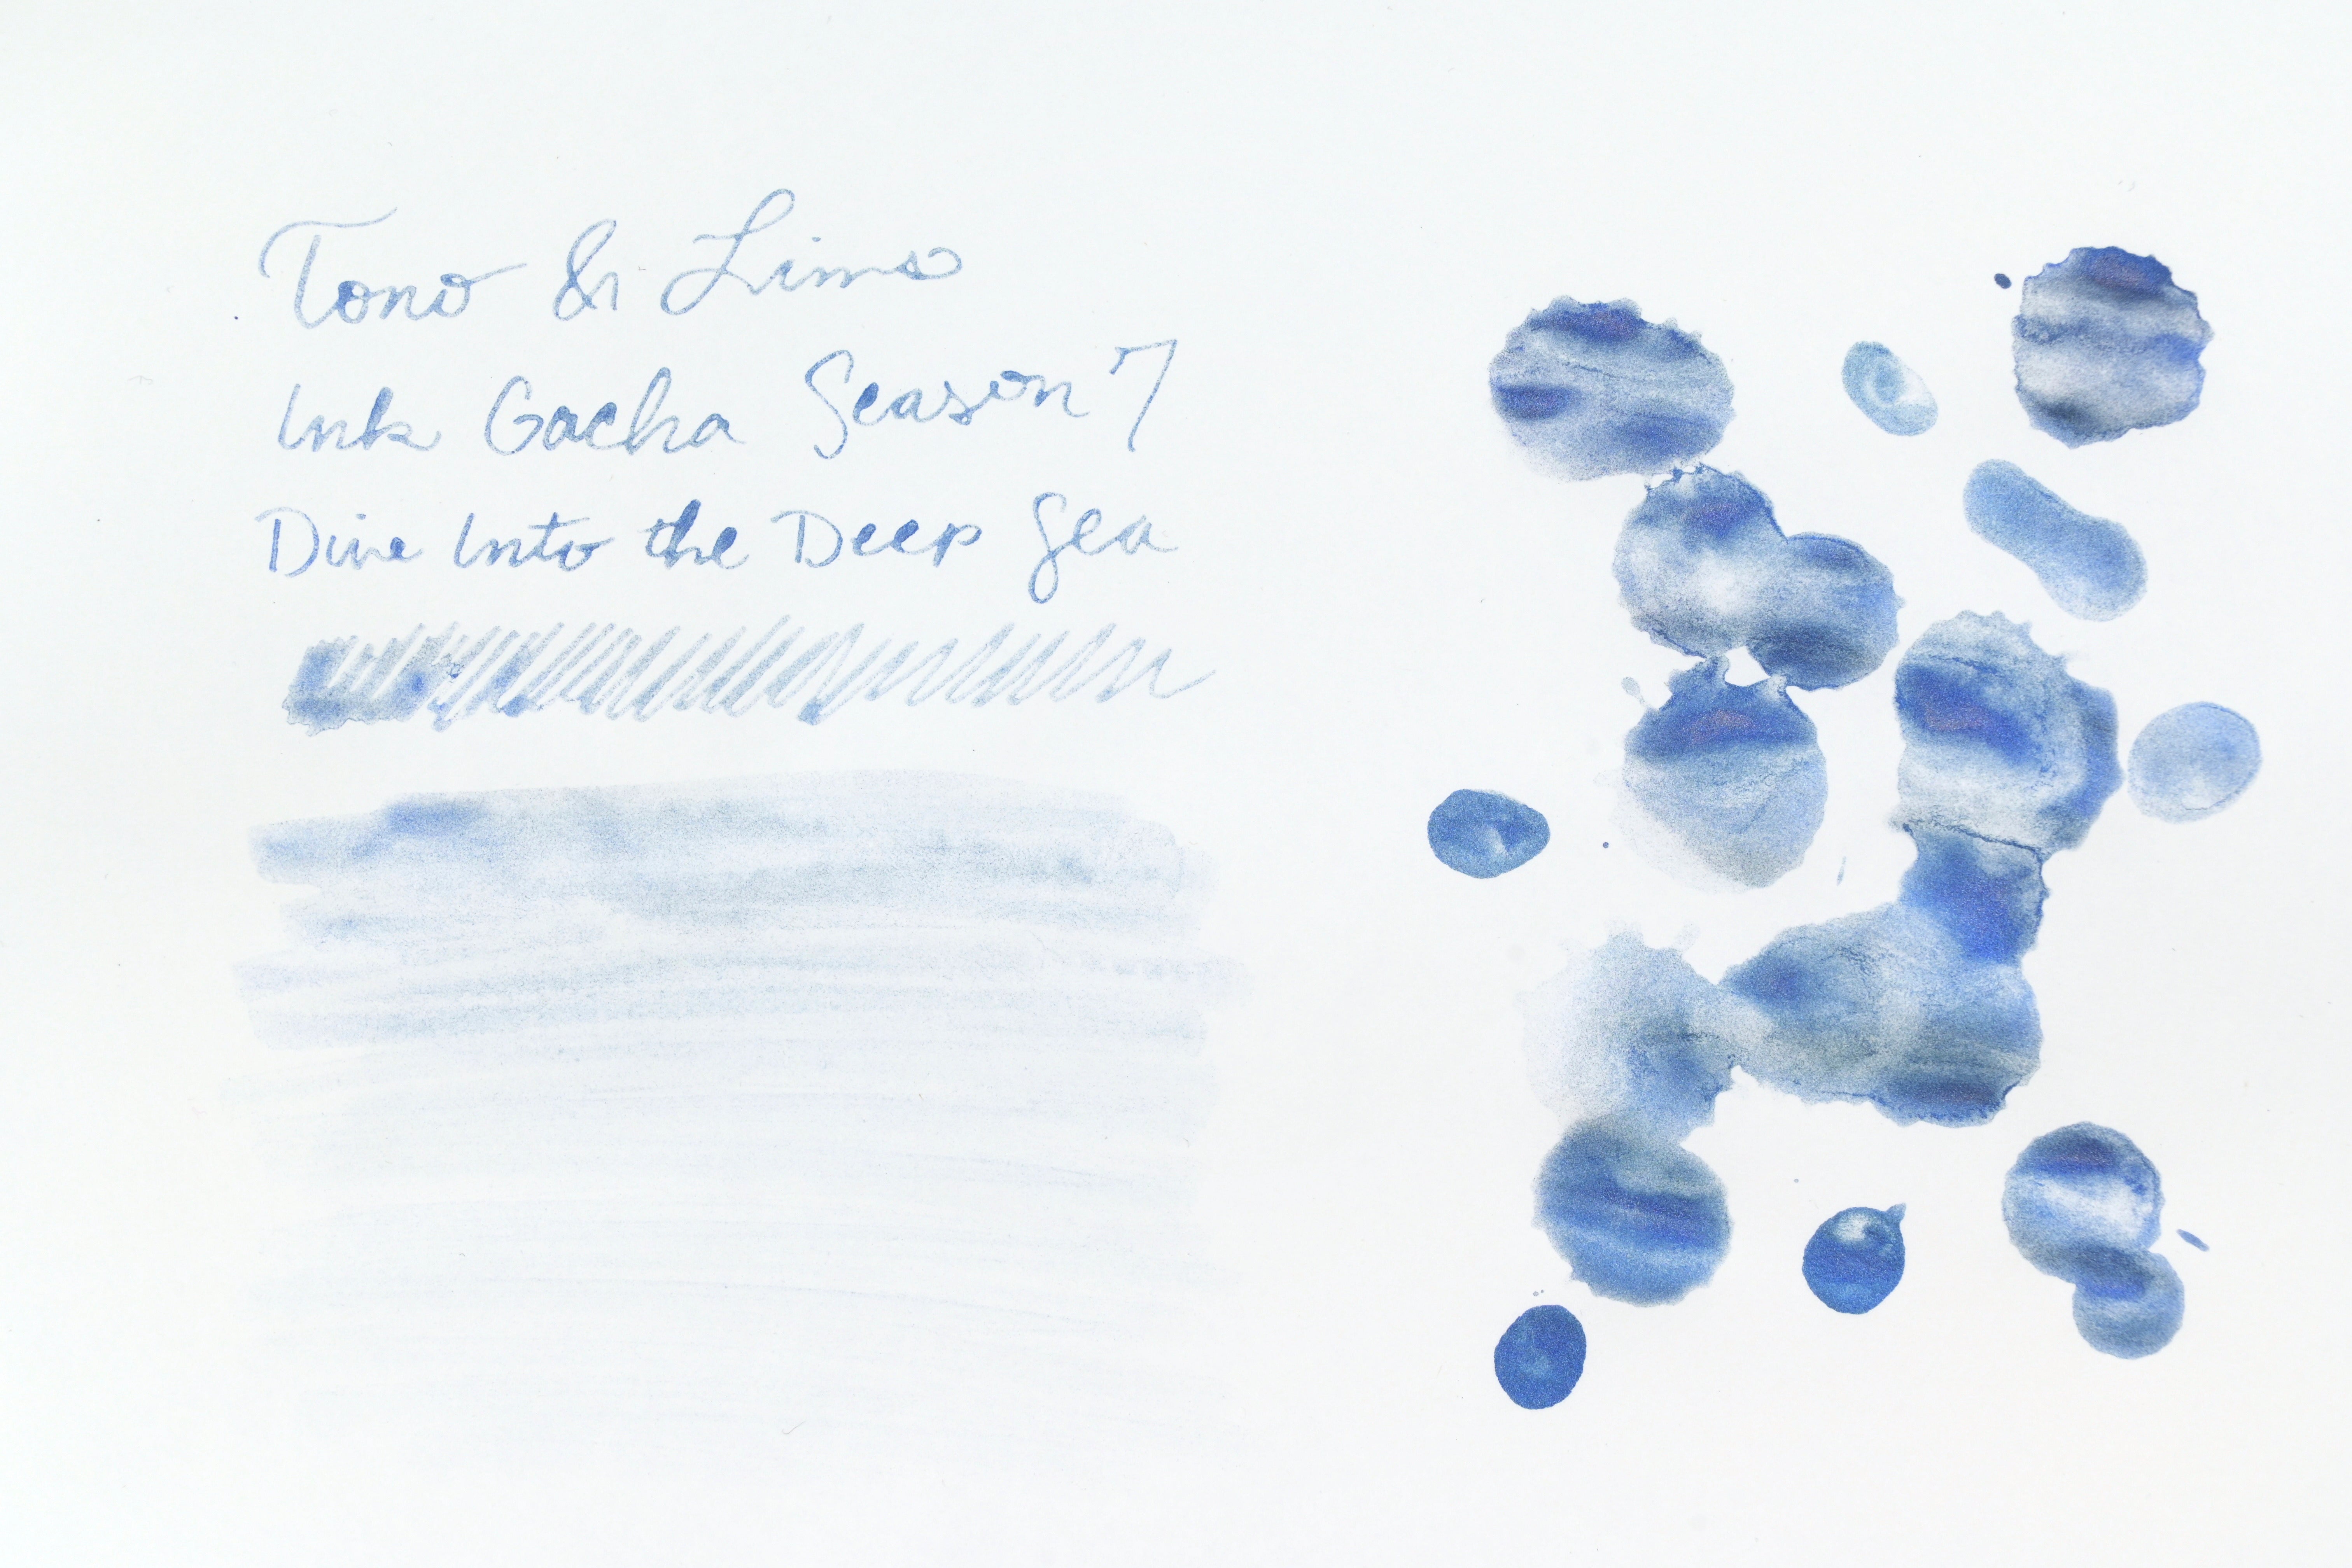 Tono & Lims
Ink Gacha Season 7
Dive Into the Deep Sea